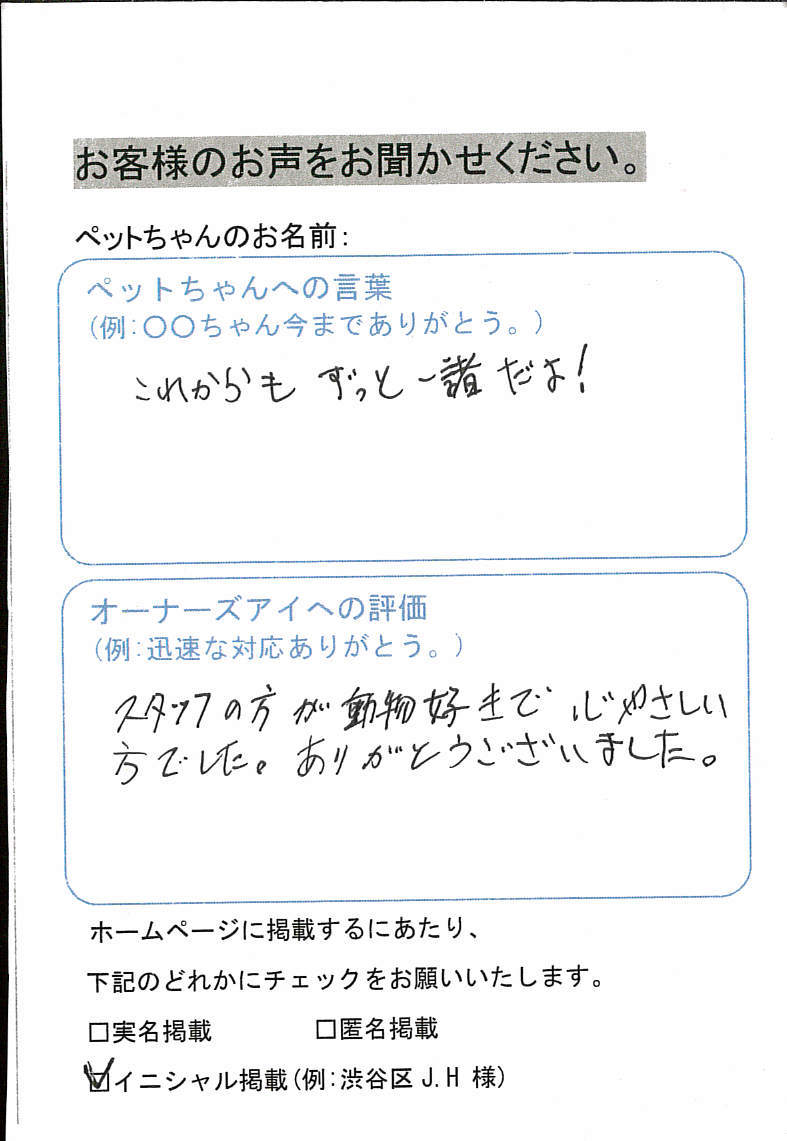 お客様のお声をお聞かせください。
ペットちゃんのお名前:
ペットちゃんへの言葉
(例:〇〇ちゃん今までありがとう。)
これからも ずっと一諸だよ!
オーナーズアイへの評価
(例:迅速な対応ありがとう。)
スタッフの方が動物好きで 心やさしい
方でした。ありがとうございました。
ホームページに掲載するにあたり、
下記のどれかにチェックをお願いいたします。
□実名掲載 □匿名掲載
☑イニシャル掲載(例:渋谷区 J.H 様)